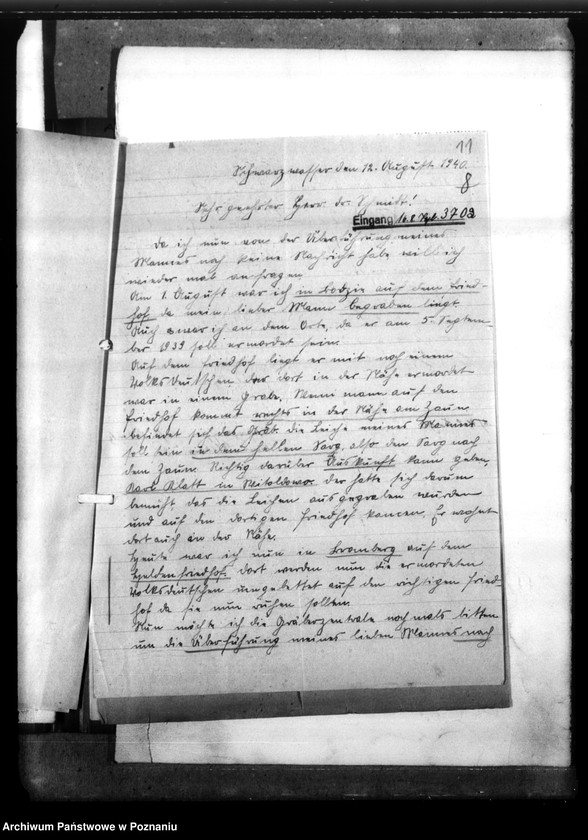 11
Schwarzwasser den 12. August 1940.
8
Sehr geehrter Herr Dr. Schmidt!
Eingang 16.8. 3703
Da ich nun von der Überführung meines
Mannes noch keine Nachricht habe will ich
wieder mal anfragen
Am 1. August war ich in Lodzie auf dem Fried-
hof da mein lieber Mann begraben liegt
Auch war ich an dem Orte, da er am 5. Septem-
ber 1939 soll ermordet sein.
Auf dem Friedhof liegt er mit noch einem
Volksdeutschen der dort in der Nähe ermordet
war in einem Grabe. Wenn mann auf den
Friedhof kommt rechts in der Nähe am Zaun
befindet sich das Grab. die Leiche meines Mannes
soll sein in dem hellen Sarg, also den Sarg nach
dem Zaun Richtig darüber Auskunft kann geben,
Karl Klatt in Witoldowo der hatte sich darum
bemüht, das die Leichen ausgegraben wurden
und auf den dortigen Friedhof kamen. Er wohnt
dort auch in der Nähe.
Heute war ich nun in Bromberg auf dem
Heldenfriedhof, dort werden nun die ermordeten
Volksdeutschen umgebettet auf den richtigen Fried-
hof da sie nun ruhen sollen
Nun möchte ich die Gräberzentrale nochmals bitten
um die Überführung meines lieben Mannes nach
Archiwum Państwowe w Poznaniu